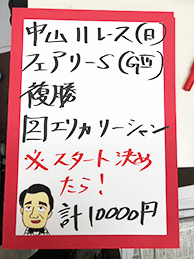 中山11レース(日)
フェアリーS(GⅢ)
複勝
2エリカリーシャン
※スタート決め
たら!
計10000円